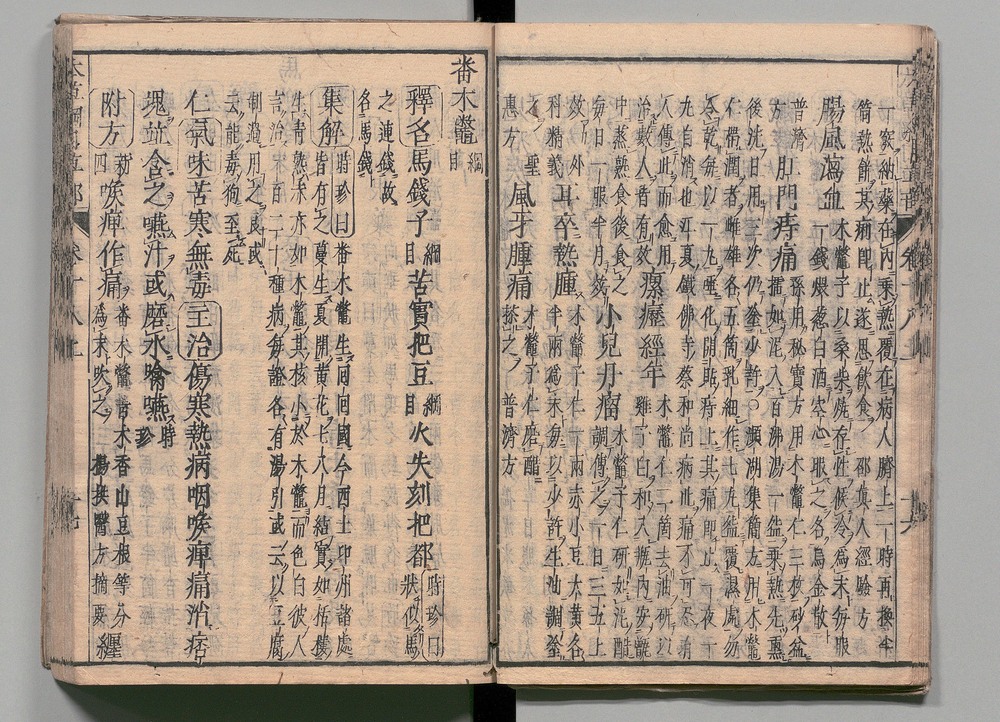 一下納藥在內乘熱覆在病人臍上一時再換半
箇熱餅其痢即止遂思飲食 邵真人經驗方
腸風瀉血 木鱉子以桑柴燒存性候冷為末每服
一錢煨葱白酒空心服之名烏金散
普濟 肛門痔痛 孫用秘寶方用木鱉仁三枚砂盆
方 擂如泥入百沸湯一盌乘熱先熏
後洗日用三次仍塗少許○瀕湖集簡方用木鱉
仁帶潤者雌雄各五箇乳細作七丸盌覆濕處勿
令乾每以一丸唾化開貼痔上其痛即止一夜一
丸自消也江夏鐵佛寺蔡和尚病此痛不可忍有
人傳此而愈用 瘰癧經年 木鱉仁二箇去油研以
治數人皆有效 雞子白和入瓶內安甑
中蒸熟食後食之 小兒丹瘤 木鱉子仁研如泥醋
每日一服半月效 調傅之一日三五上
效 外 耳卒熱腫 木鱉子仁一兩赤小豆大黃各
科精義 半兩為末每以少許生油調塗
之 聖 風牙腫痛 木鱉子仁磨醋
惠方 搽之 普濟方
番木鱉 綱目
釋名馬錢子 綱目 苦實把豆 綱目 火失刻把都 時珍曰
狀似馬
之連錢故
名馬錢
集解 時珍曰番木鱉生回回國今西土卭州諸處
皆有之蔓生夏開黃花七八月結實如栝樓
生青熟赤亦如木鱉其核小於木鱉而色白彼人
言治一百二十種病每證各有湯引或云以豆腐
制過用之良或
云能毒狗至死
仁氣味苦寒無毒主治傷寒熱病咽喉痺痛消痞
塊並含之嚥汁或磨水噙嚥 時珍
附方 新四 喉痺作痛 番木鱉青木香山豆根等分
為末吹之 楊拱醫方摘要 纏